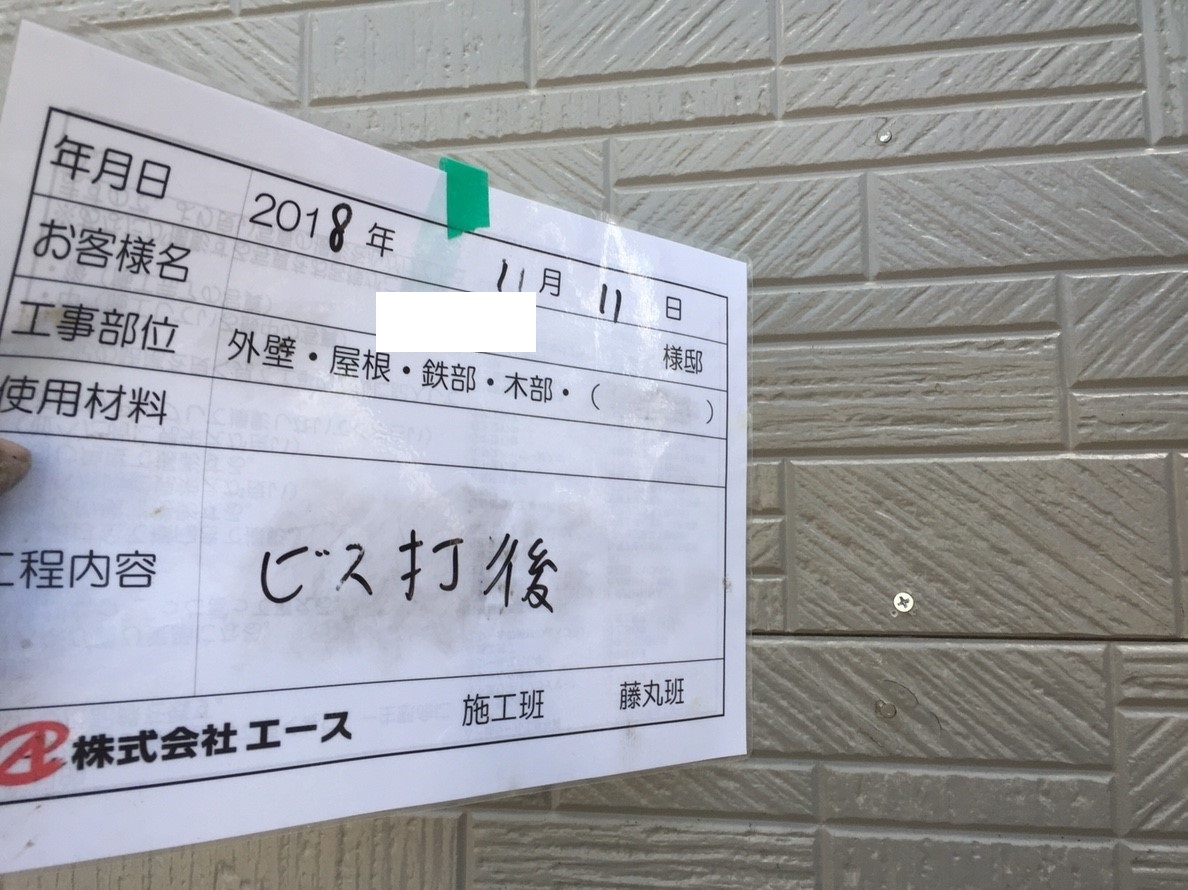 年月日 2018年 11月 11日
お客様名 様邸
工事部位 外壁・屋根・鉄部・木部・( )
使用材料
工程内容 ビス打後
施工班 藤丸班
株式会社エース